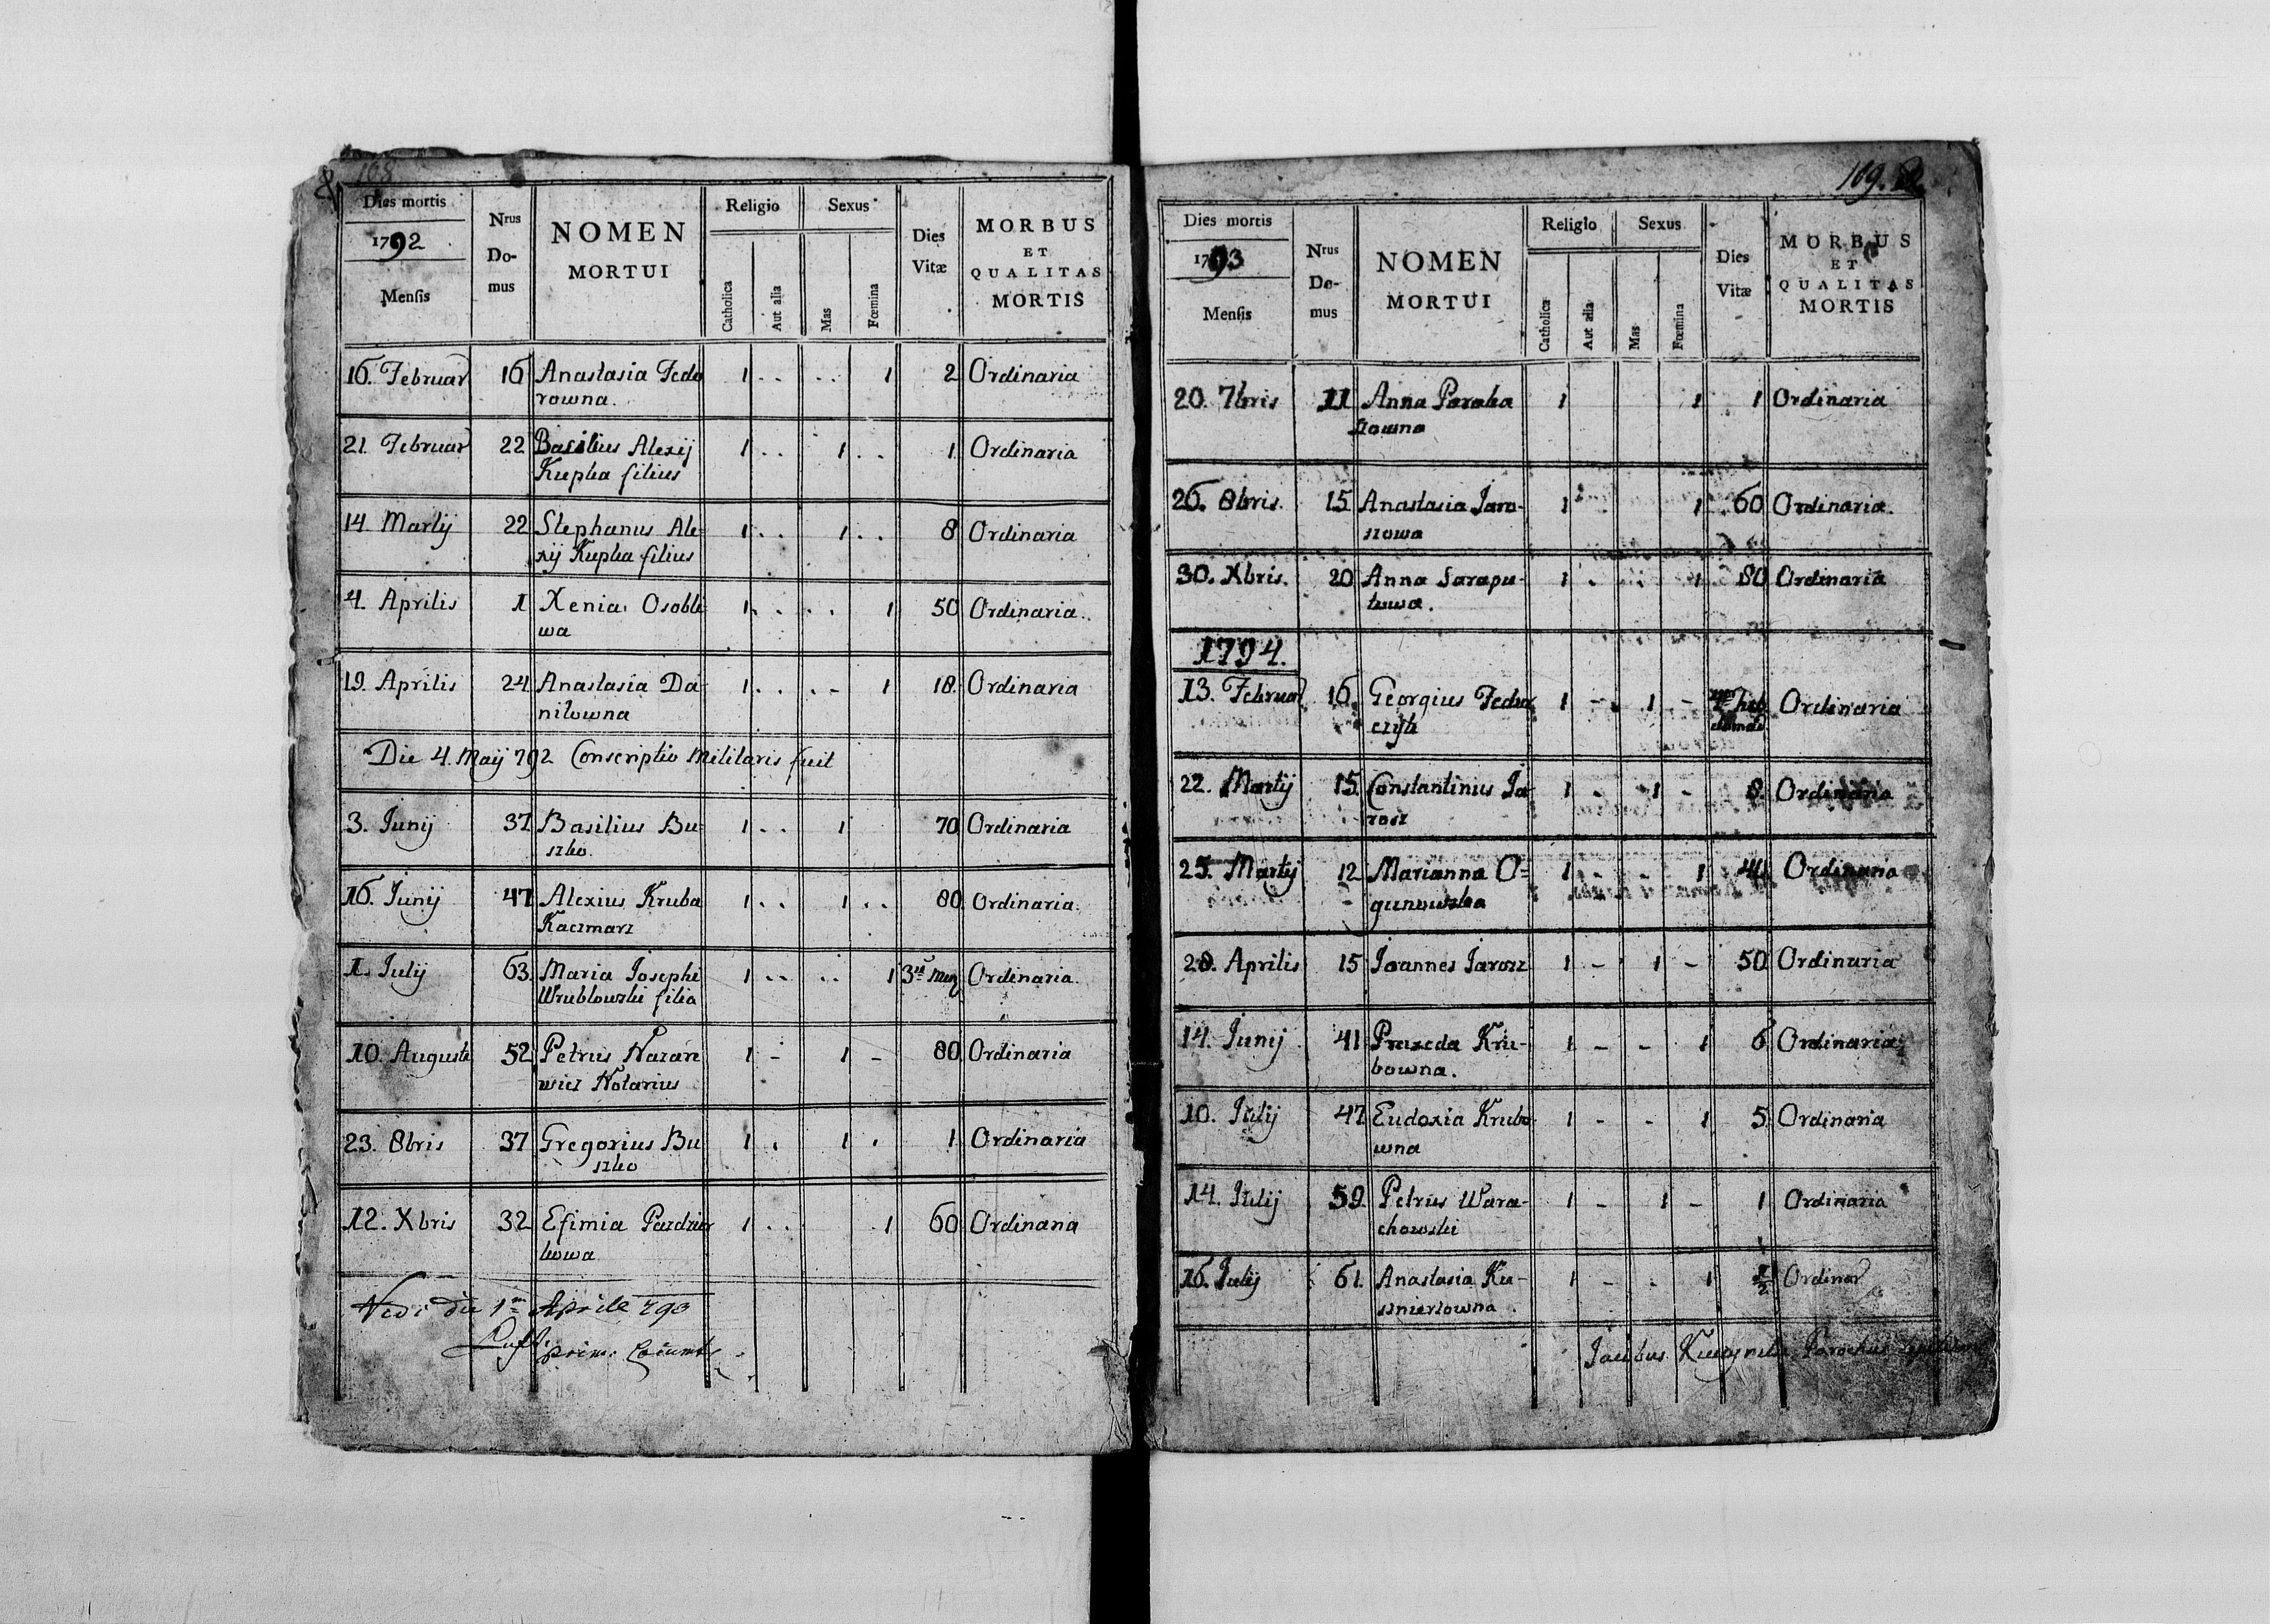 168
Dies mortis
1792
Mensis
Nrus Do-mus
NOMEN
MORTUI
Religio
Catholica
Aut alia
Sexus
Mas
Fœmina
Dies Vitæ
MORBUS
ET
QUALITAS
MORTIS
16. Februar 16 Anastasia Fedo 1 . . . . 1 2 Ordinaria
rowna.
21. Februar 22 Basilius Alexij 1 . . 1 . . 1 Ordinaria
Kupka filius
14. Martij 22 Stephanus Ale- 1 . . 1 . . 8 Ordinaria
xij Kupka filius
4. Aprilis 1 Xenia Osobli 1 . . . . 1 50 Ordinaria.
wa
19. Aprilis 24 Anastasia Da- 1 . . . - 1 18 Ordinaria
nilowna
Die 4. Maij 792 Conscriptio Militaris fuit
3. Junij 37. Basilius Bu- 1 . . 1 70 Ordinaria
szko.
16. Junij 47 Alexius Kruba 1 . . 1 . . 80. Ordinaria.
Kaczmarz
1. Julij 63. Maria Josephi 1 . . . . 1 3 Ordinaria.
Wrublowski filia
10. Augusti 52 Petrus Nazare 1 - 1 - 80 Ordinaria
wicz Notarius
23. 8bris 37 Gregorius Bu 1 . 1 . 1 Ordinaria
szko
12. Xbris 32 Efimia Pazdzier 1 . . 1 60 Ordinaria
kowa
Vidi die 1ma Aprile 793
169.
Dies mortis
1793
Mensis
Nrus Do-mus
NOMEN
MORTUI
Religio
Catholica
Aut alia
Sexus
Mas
Fœmina
Dies Vitæ
MORBUS
ET
QUALITAS
MORTIS
20. 7bris 11 Anna 1 1 1 Ordinaria
26. 8bris. 15 Anastasia Jaro- 1 1 60 Ordinaria.
szowa
30. Xbris. 20 Anna Sarapu- 1 . . 1 80 Ordinaria
kowa.
1794.
13. Februar 16. Georgius Fedor 1 - 1 - Ordinaria
czyk
22. Martij 15. Constantinus Ja- 1 - 1 - 8. Ordinaria
rosz
25. Martij 12 Marianna O= 1 - - 1 40 Ordinaria
gunowska
28. Aprilis 15 Joannes Jarosz 1 - 1 - 50 Ordinaria
14. Junij 41 Praxeda Kru- 1 - - 1 6 Ordinaria
bowna.
10. Julij 47 Eudoxia Krubo 1 - - 1 5. Ordinaria
wna
14. Julij 59. Petrus Wara- 1 - 1 - 1 Ordinaria
chowski
16. Julij 61. Anastasia Ku- 1 - - 1 1/2 Ordinar
sznierzowna.
Parochus